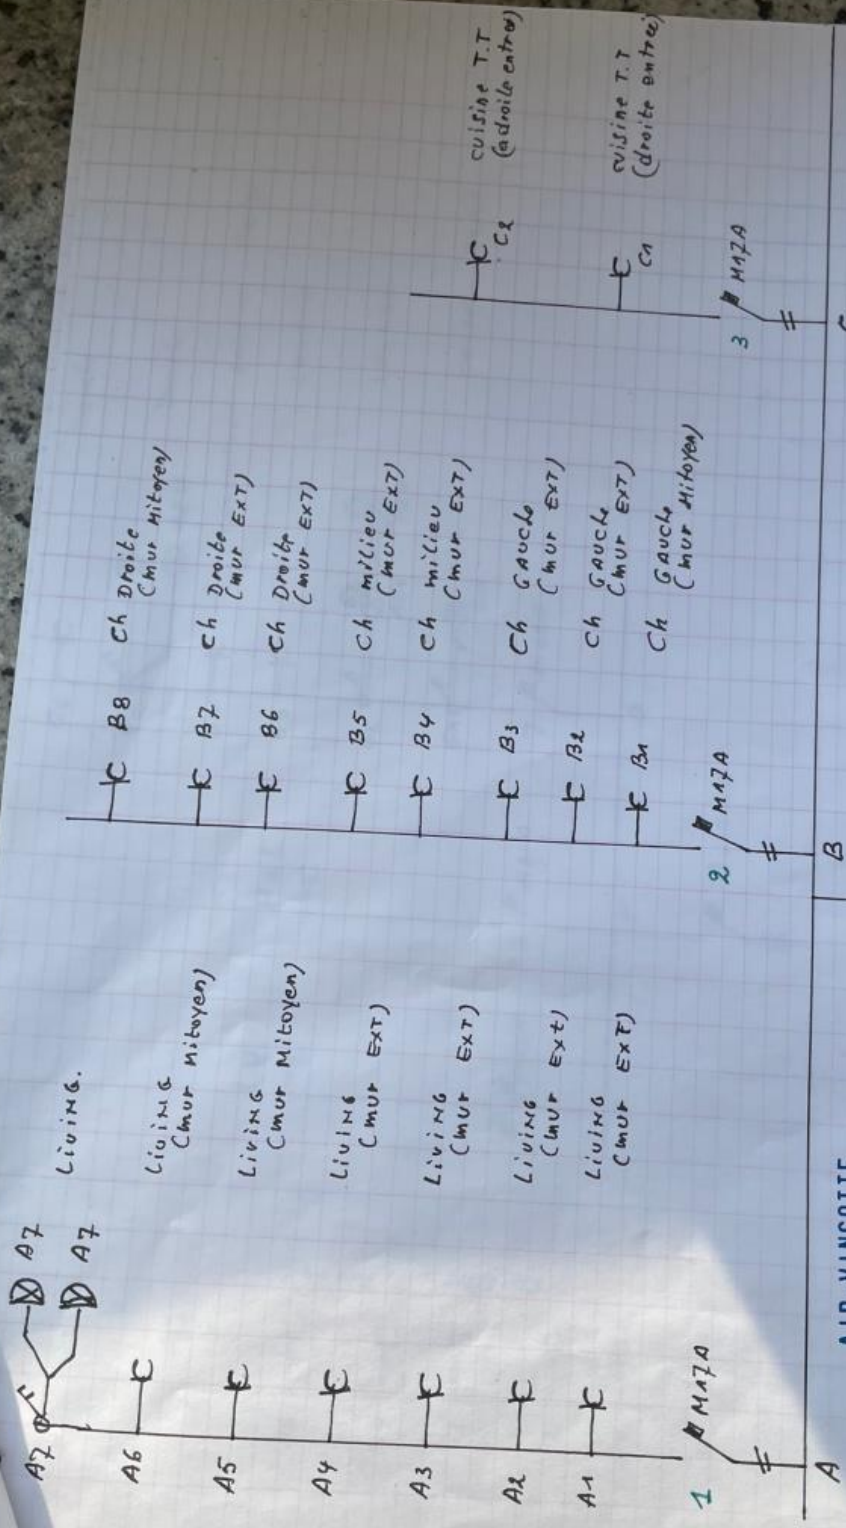 A7
A7
A7
LiviNG.
A6
LiviNG
(mur Mitoyen)
A5
LiviNG
(mur Mitoyen)
A4
LiviNG
(mur EXT)
A3
LiviNG
(mur EXT)
A2
LiviNG
(mur Ext)
A1
LiviNG
(mur EXT)
1
M17A
A
B8 Ch Droite
(mur Mitoyen)
B7 Ch Droite
(mur EXT)
B6 Ch Droite
(mur EXT)
B5 Ch milieu
(mur EXT)
B4 Ch milieu
(mur EXT)
B3 Ch GAUche
(mur EXT)
B2 Ch GAUche
(mur EXT)
B1 Ch GAUche
(mur Mitoyen)
2
M17A
B
cuisine T.T
(adroite entree)
C2
cuisine T.T
(droite entree)
C1
3
M17A